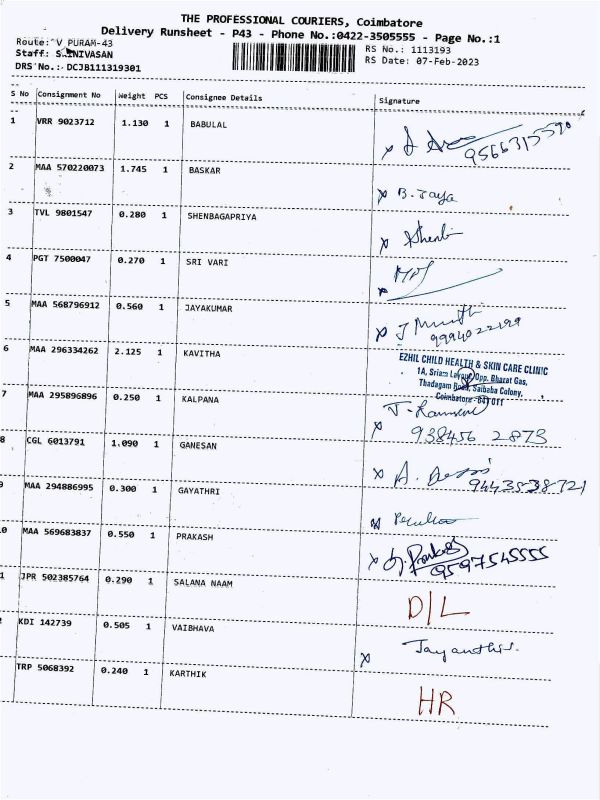 THE PROFESSIONAL COURIERS, Coimbatore
Delivery Runsheet - P43 - Phone No.:0422-3505555 - Page No.:1
Route: V PURAM-43
Staff: S.INIVASAN
DRS No.: DCJB111319301
RS No.: 1113193
RS Date: 07-Feb-2023
S No Consignment No Weight PCS Consignee Details Signature
1 VRR 9023712 1.130 1 BABULAL
9566315590
2 MAA 570220073 1.745 1 BASKAR
x B. Jaya
3 TVL 9801547 0.280 1 SHENBAGAPRIYA
x Shenbi
4 PGT 7500047 0.270 1 SRI VARI
x
5 MAA 568796912 0.560 1 JAYAKUMAR
x J
6 MAA 296334262 2.125 1 KAVITHA
EZHIL CHILD HEALTH & SKIN CARE CLINIC
1A, Sriam Layout, Opp. Bharat Gas,
Thadagam Road, Saibaba Colony,
Coimbatore - 641 011
7 MAA 295896896 0.250 1 KALPANA
x
938456 2873
8 CGL 6013791 1.090 1 GANESAN
x A.
9443538721
9 MAA 294886995 0.300 1 GAYATHRI
x
0 MAA 569683837 0.550 1 PRAKASH
x G. Prakash
9597545555
1 JPR 502385764 0.290 1 SALANA NAAM
D/L
2 KDI 142739 0.505 1 VAIBHAVA
x Jayanthi
TRP 5068392 0.240 1 KARTHIK
HR